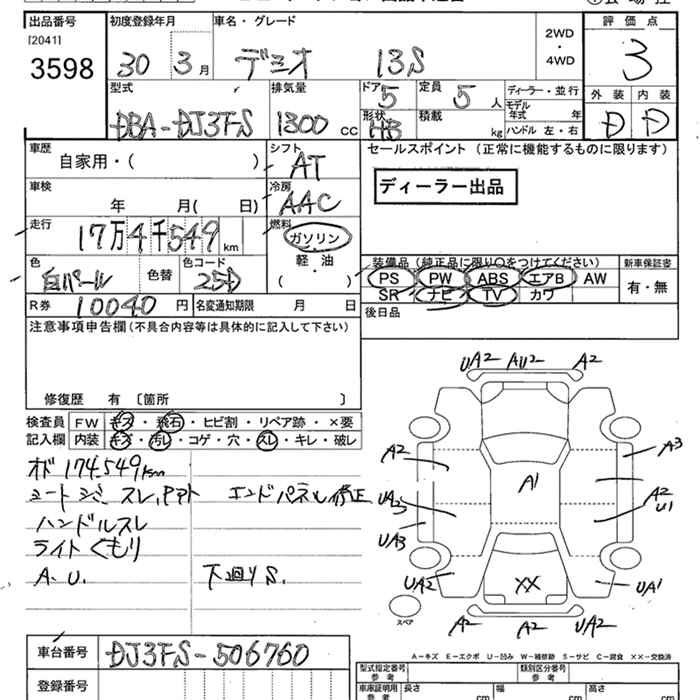 出品番号
[2041]
3598
初度登録年月
30 3月
車名・グレード
デミオ 13S
2WD
・
4WD
評価点
3
外装 内装
D D
型式
DBA-DJ3FS
排気量
1300 CC
ドア
5
定員
5人
形状
HB
積載
kg
ディーラー・並行
モデル
年式 年
ハンドル 左・右
車歴
自家用・( )
シフト
AT
車検
年 月( 日)
冷房
AAC
走行
17万4千549km
燃料
ガソリン
軽・油
( )
色
白パール
色替
色コード
25D
R券
10040円
名変通知期限 月 日
セールスポイント (正常に機能するものに限ります)
ディーラー出品
装備品(純正品に限り○をつけてください)
PS PW ABS エアB AW
SR ナビ TV カワ
新車保証書
有・無
後日品
注意事項申告欄(不具合内容等は具体的に記入して下さい)
修復歴 有 〔箇所 〕
検査員
記入欄
FW キズ・飛石・ヒビ割・リペア跡・×要
内装 キズ・汚レ・コゲ・穴・スレ・キレ・破レ
オド 174,549km
シートシミ スレ、
エンドパネル修正
ハンドルスレ
ライトくもり
A.U.
下廻りS.
UA2 AU2 A2
A2
A3
A1
UA3
A2
U1
UA3
UA2
XX
UA1
A2 A2
スペア
A-キズ E-エクボ U-凹み W-補修跡 S-サビ C-腐食 ××-交換済
車台番号
DJ3FS-506760
登録番号
型式指定番号
参考
類別区分番号
参考
車庫証明用
参考
長さ cm
幅 cm
高さ cm